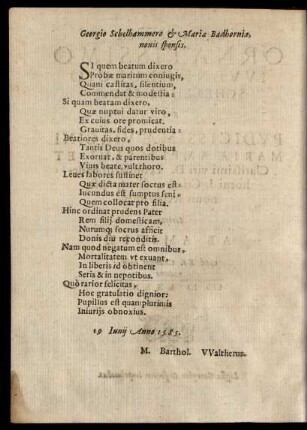 Georgio Schelhammero & Mariæ Badhorniæ,
nouis sponsis.
SI quem beatum dixero
Probæ maritum coniugis,
Quam castitas, silentium,
Commendat & modestia:
Si quam beatam dixero,
Quæ nuptui datur viro,
Ex cuius ore promicat,
Grauitas, fides, prudentia:
Beatiores dixero,
Tantis Deus quos dotibus
Exornat, & parentibus
Viuis beate
Leues labores sustinet
Quæ dicta mater socrus est:
Iucundus est sumptus seni
Quem collocat pro filia.
Hinc ordinat prudens Pater
Rem filij domesticam,
Nurumq; socrus afficit
Donis diu reconditis.
Nam quod negatum est omnibus,
Mortalitatem vt exuant,
In liberis id obtinent
Seris & in nepotibus.
Quò rarior felicitas,
Hoc gratulatio dignior:
Pupillus est quam plurimis
Iniurijs obnoxius.
19 Iunij Anno 1585.
M. Barthol. VValtherus.